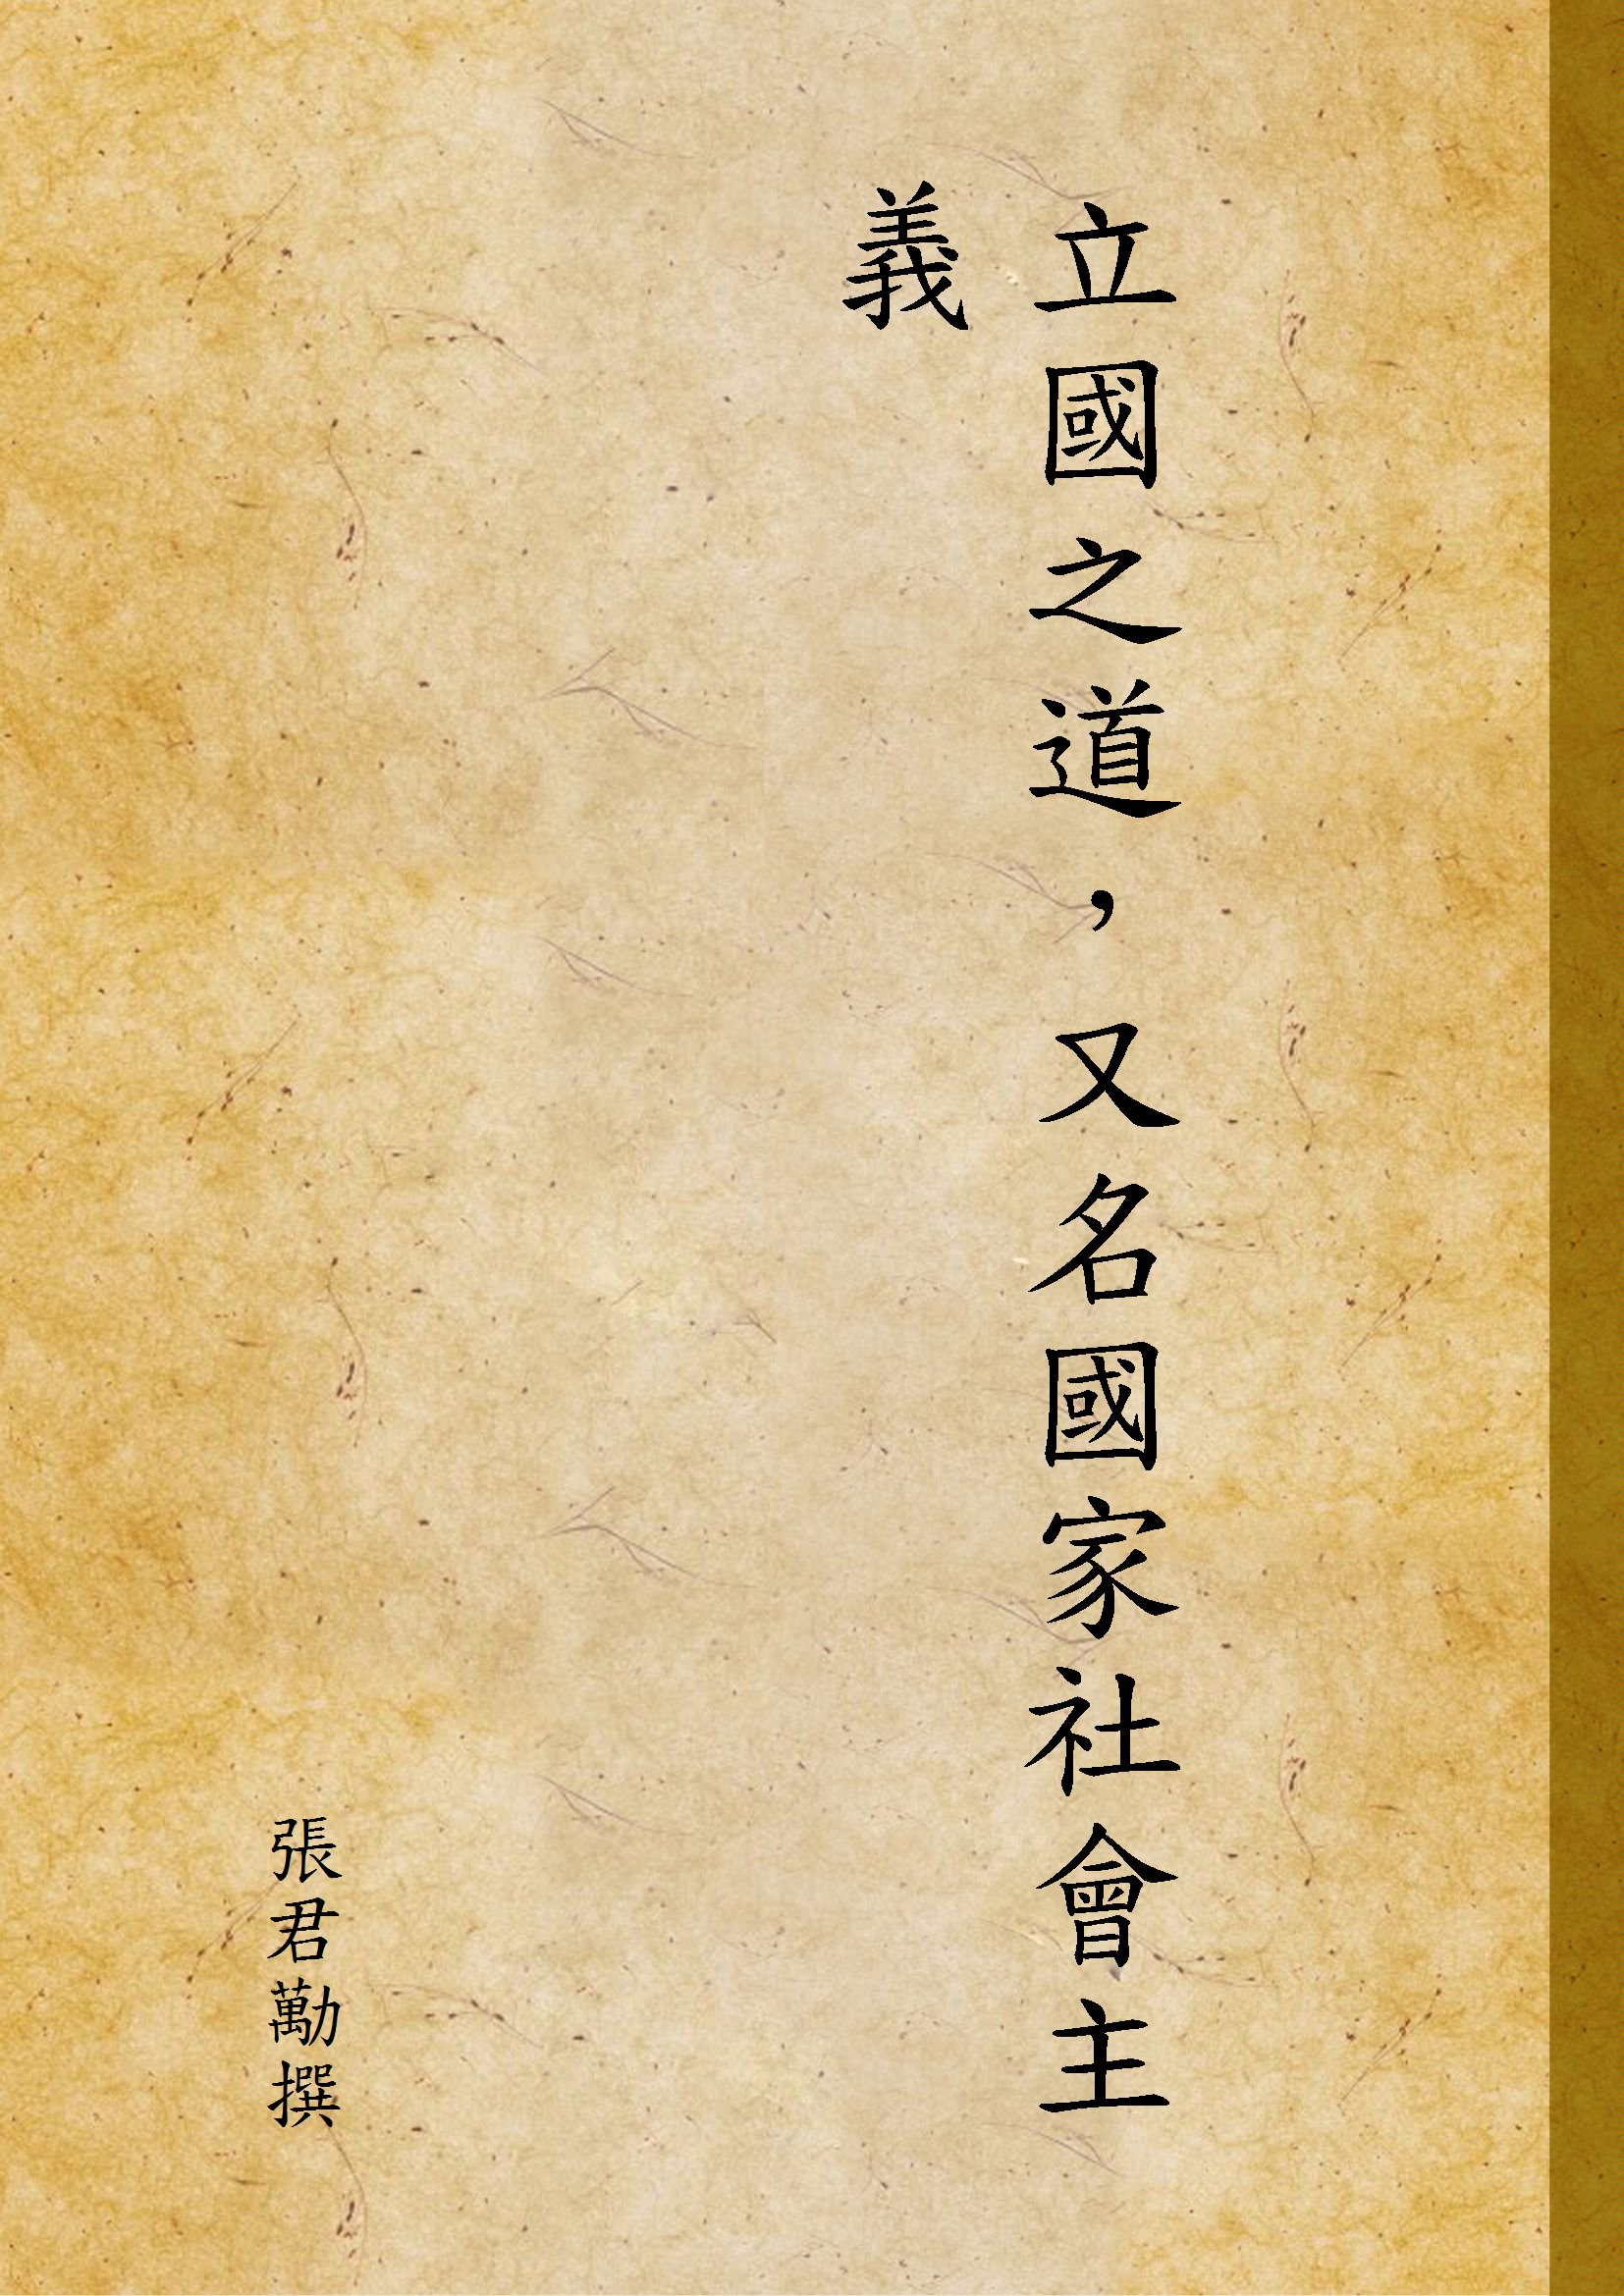 立國之道，又名國家社會主
義
張君勱撰